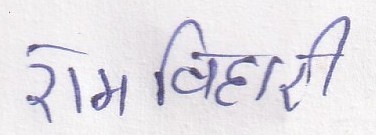 राम विहारी